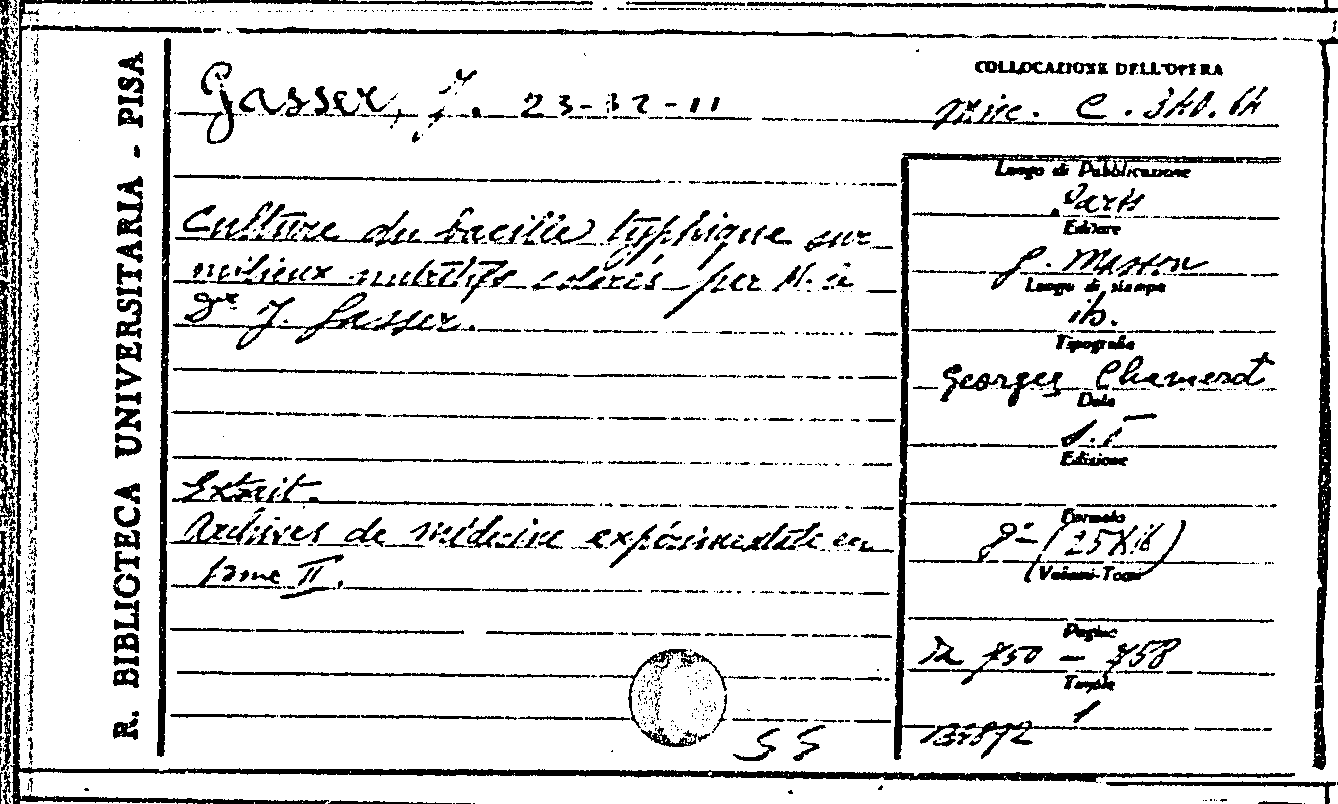 R. BIBLIOTECA UNIVERSITARIA - PISA
Gasser, J. 23-32-11
COLLOCAZIONE DELL'OPERA
misc. C. 340. 64
Culture du bacille typhique sur
milieux nutritifs colorés par M. le
Dr J. Gasser.
Extrait.
Archives de médecine expérimentale
tome II.
Luogo di Pubblicazione
Paris
Editore
G. Masson
Luogo di stampa
ib.
Tipografia
Georges Chamerot
Data
s.t
Edizione
Formato
8° (25x16)
(Volumi-Tomi)
Pagine
Da 750 - 758
Tavole
1
SS